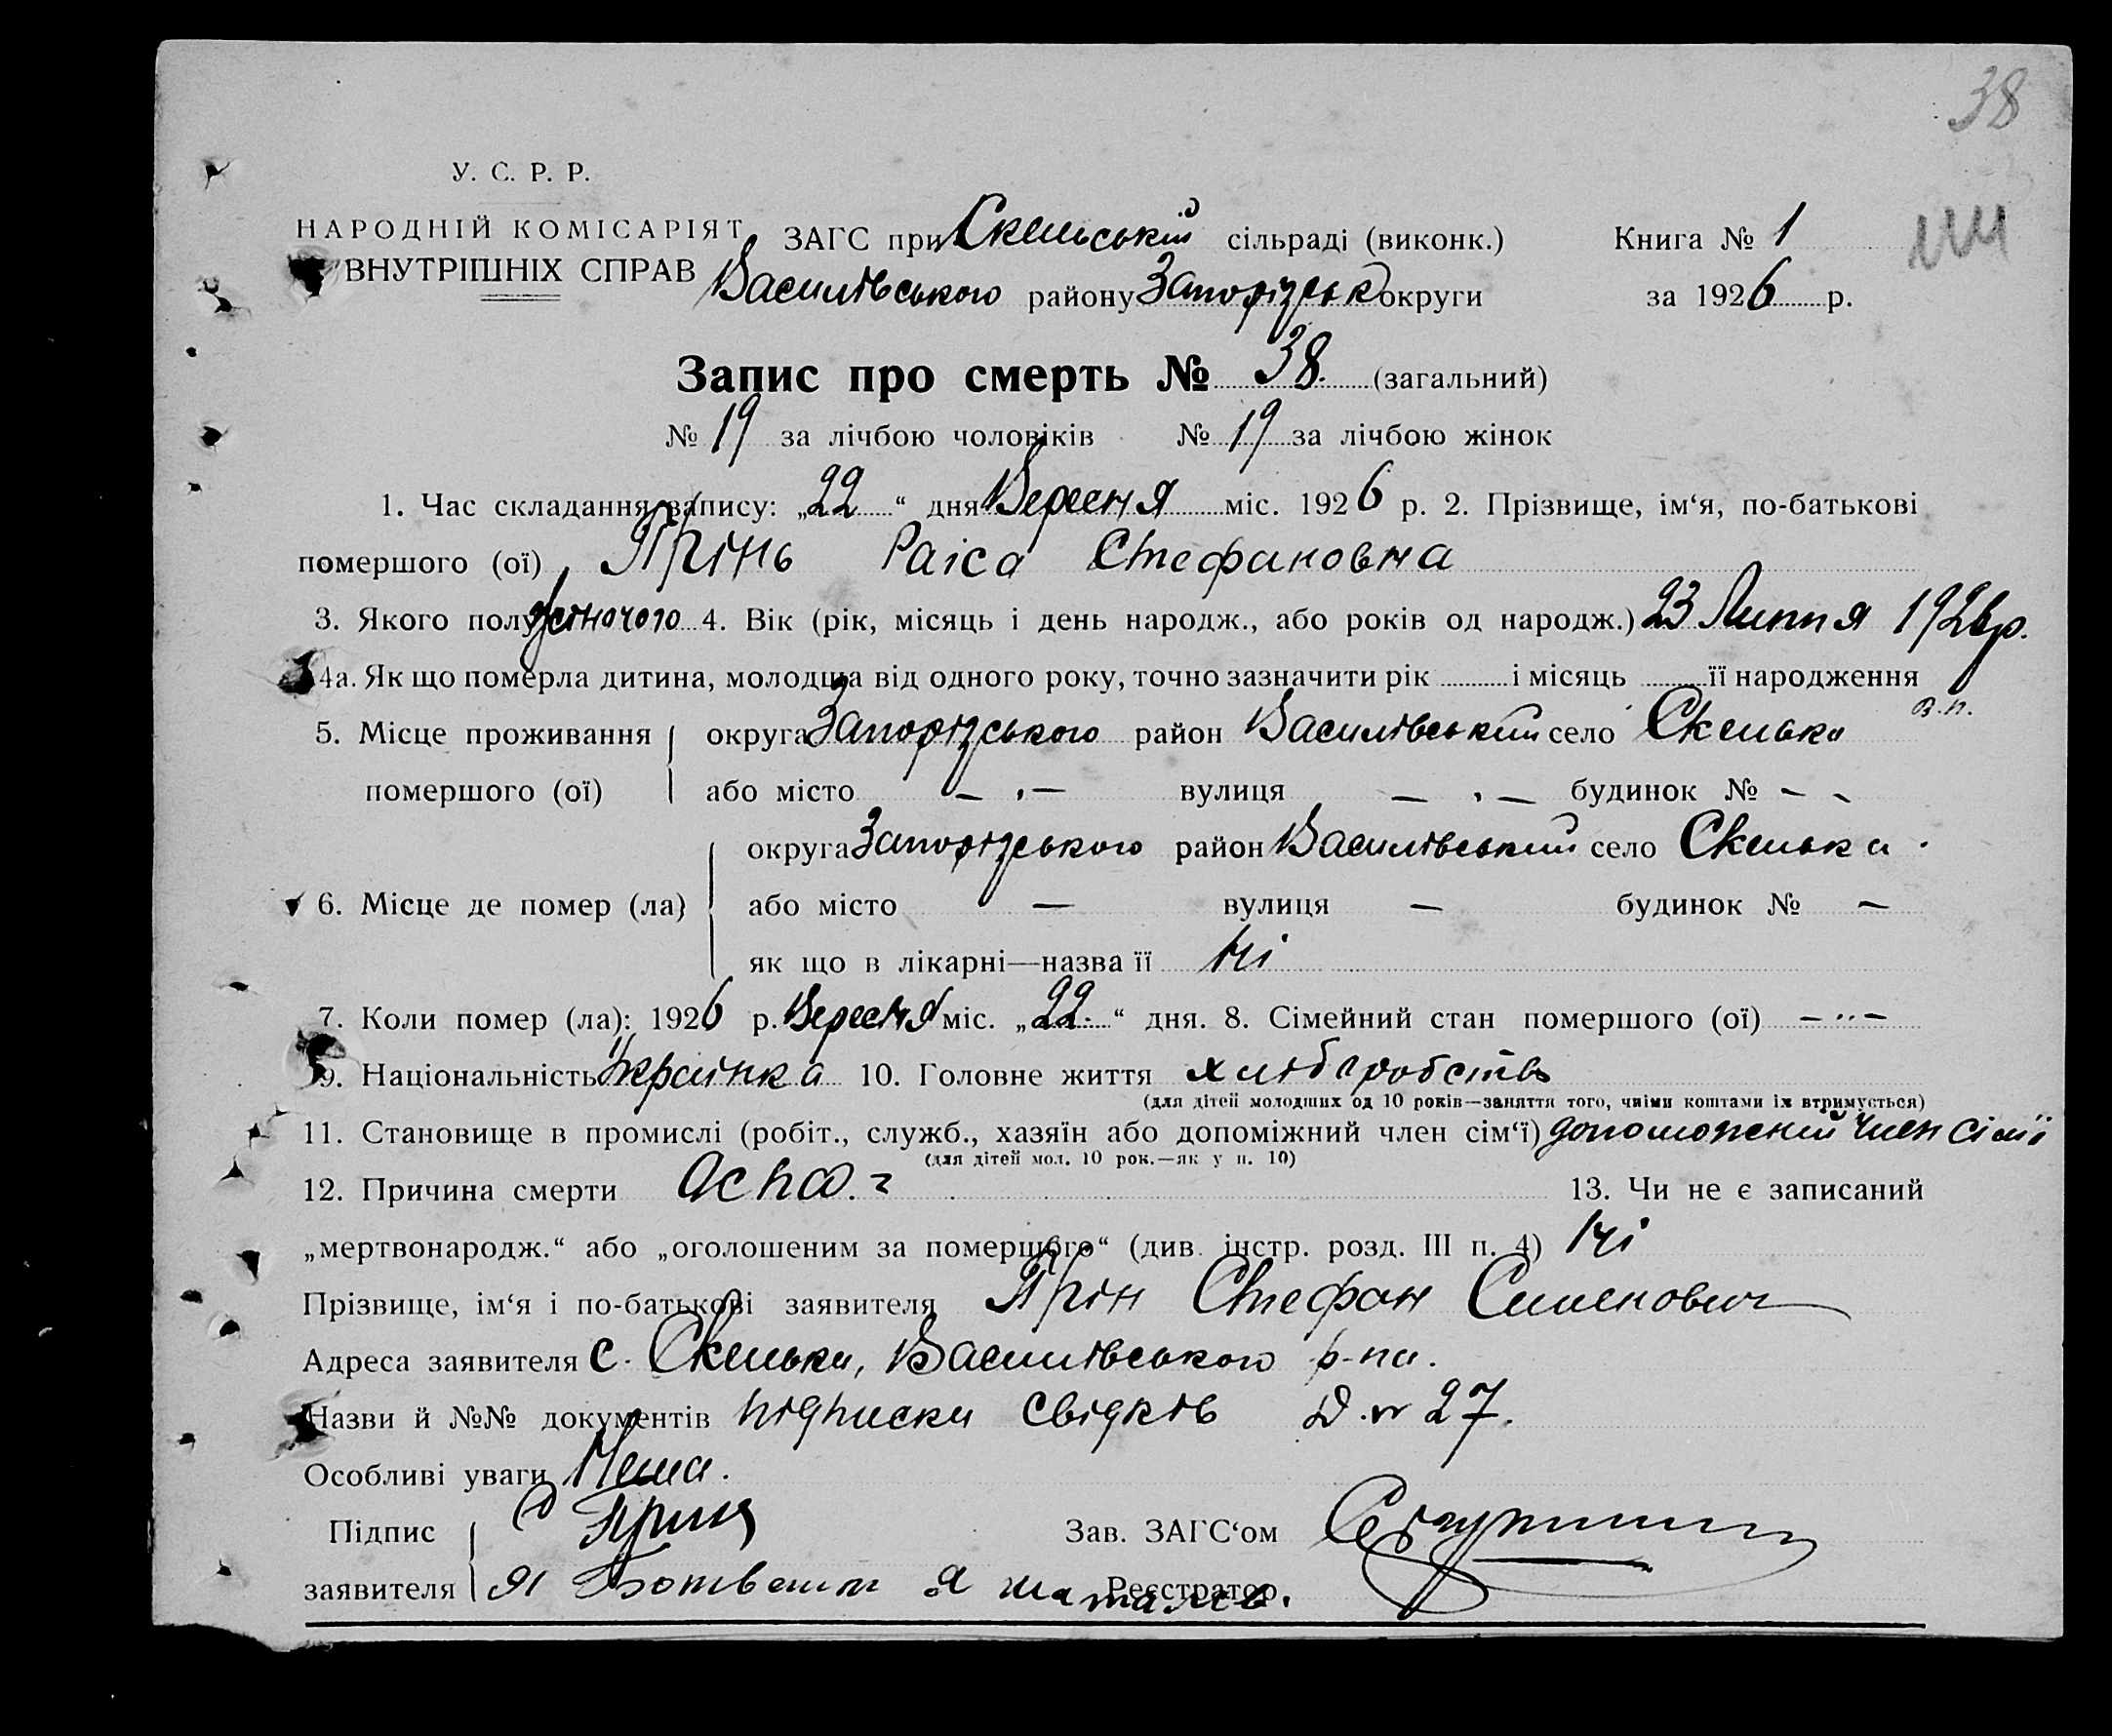 38
У. С. Р. Р.
НАРОДНІЙ КОМІСАРІЯТ
ВНУТРІШНІХ СПРАВ
ЗАГС при Скельській сільраді (виконк.) Книга № 1
Василівського району Запорізьк округи за 1926 р.
Запис про смерть № 38. (загальний)
№ 19 за лічбою чоловіків № 19 за лічбою жінок
1. Час складання запису: „22“ дня Вересня міс. 1926 р. 2. Прізвище, ім‘я, по-батькові
помершого (ої) Прінь Раіса Стефановна
3. Якого полу жіночого 4. Вік (рік, місяць і день народж., або років од народж.) 23 Липня 1926 р.
4а. Як що померла дитина, молодша від одного року, точно зазначити рік і місяць її народження
5. Місце проживання округа Запорізського район Василівський село Скельки
помершого (ої) або місто — „ — вулиця — „ — будинок № - -
округа Запорізського район Василівський село Скельки.
6. Місце де помер (ла) або місто — вулиця — будинок № —
як що в лікарні—назва її ні
7. Коли помер (ла): 1926 р. Вересня міс. „22.“ дня. 8. Сімейний стан помершого (ої) — „ —
9. Національність Українка 10. Головне життя хліборобство
(для дітей молодших од 10 років—заняття того, чиїми коштами їх втримується)
11. Становище в промислі (робіт., служб., хазяїн або допоміжний член сім‘ї) допоможений член сімї
(для дітей мол. 10 рок.—як у п. 10)
12. Причина смерти 13. Чи не є записаний
„мертвонародж.“ або „оголошеним за помершого“ (див. інстр. розд. III п. 4) ні
Прізвище, ім‘я і по-батькові заявителя Прін Стефан Семенович
Адреса заявителя с. Скельки, Василівського р-на.
Назви й №№ документів підписки свідків Д. № 27.
Особливі уваги Нема.
Підпис Зав. ЗАГС‘ом
заявителя Реєстратор